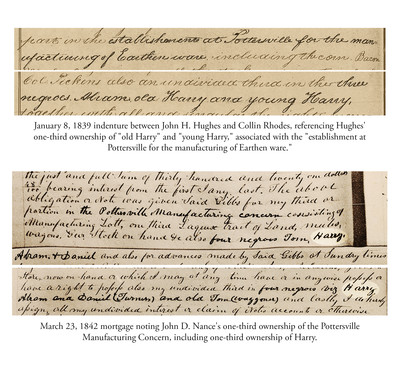 port in the establishments at Pottersville for the man-
ufacturing of Earthen ware, including the corn
Col. Pickens also an undivided third in the three
negroes. Abram, old Harry and young Harry,
January 8, 1839 indenture between John H. Hughes and Collin Rhodes, referencing Hughes'
one-third ownership of "old Harry" and "young Harry," associated with the "establishment at
Pottersville for the manufacturing of Earthen ware."
the just and full Sum of thirty hundred and twenty one dollar
bearing interest from the first Jany. last. The above
obligation or note was given Said Gibbs for my third or
portion in the Pottersville Manufacturing concern consisting of
Manufacturing Lott, on third Tract of Land, mules,
wagons, Stock on hand & also four negroes Tom, Harry,
Abram & Daniel and also for advances made by Said Gibbs at Sundry times
now on hand or which I may at any time have or in anywise possess or
have a right to possess also my undivided third in four negroes viz Harry
Abram and Daniel (Turners) and old Tom (waggoner) and lastly I do hereby
assign, all my undivided interest or claim of accounts or otherwise
March 23, 1842 mortgage noting John D. Nance's one-third ownership of the Pottersville
Manufacturing Concern, including one-third ownership of Harry.